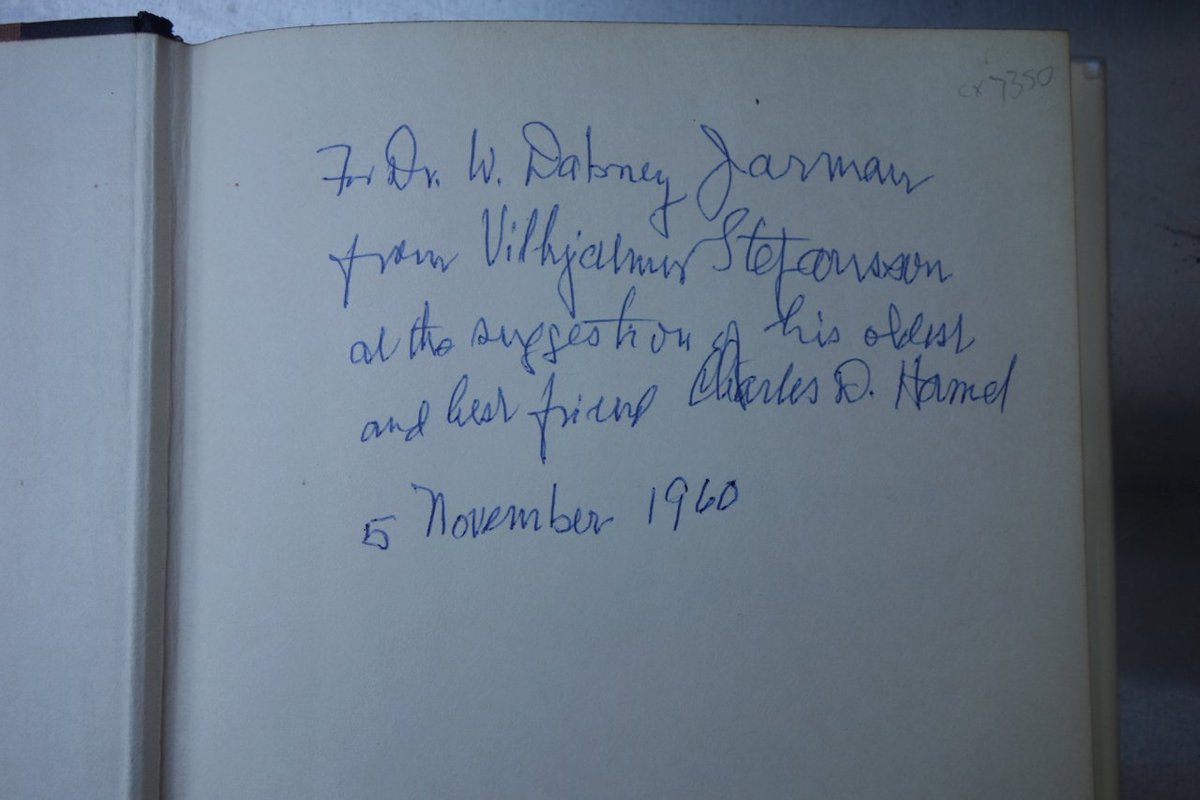 cx 7350
For Dr. W. Dabney Jarman
from Vilhjalmur Stefansson
at the suggestion of his oldest
and best friend Charles D. Hamel
5 November 1960